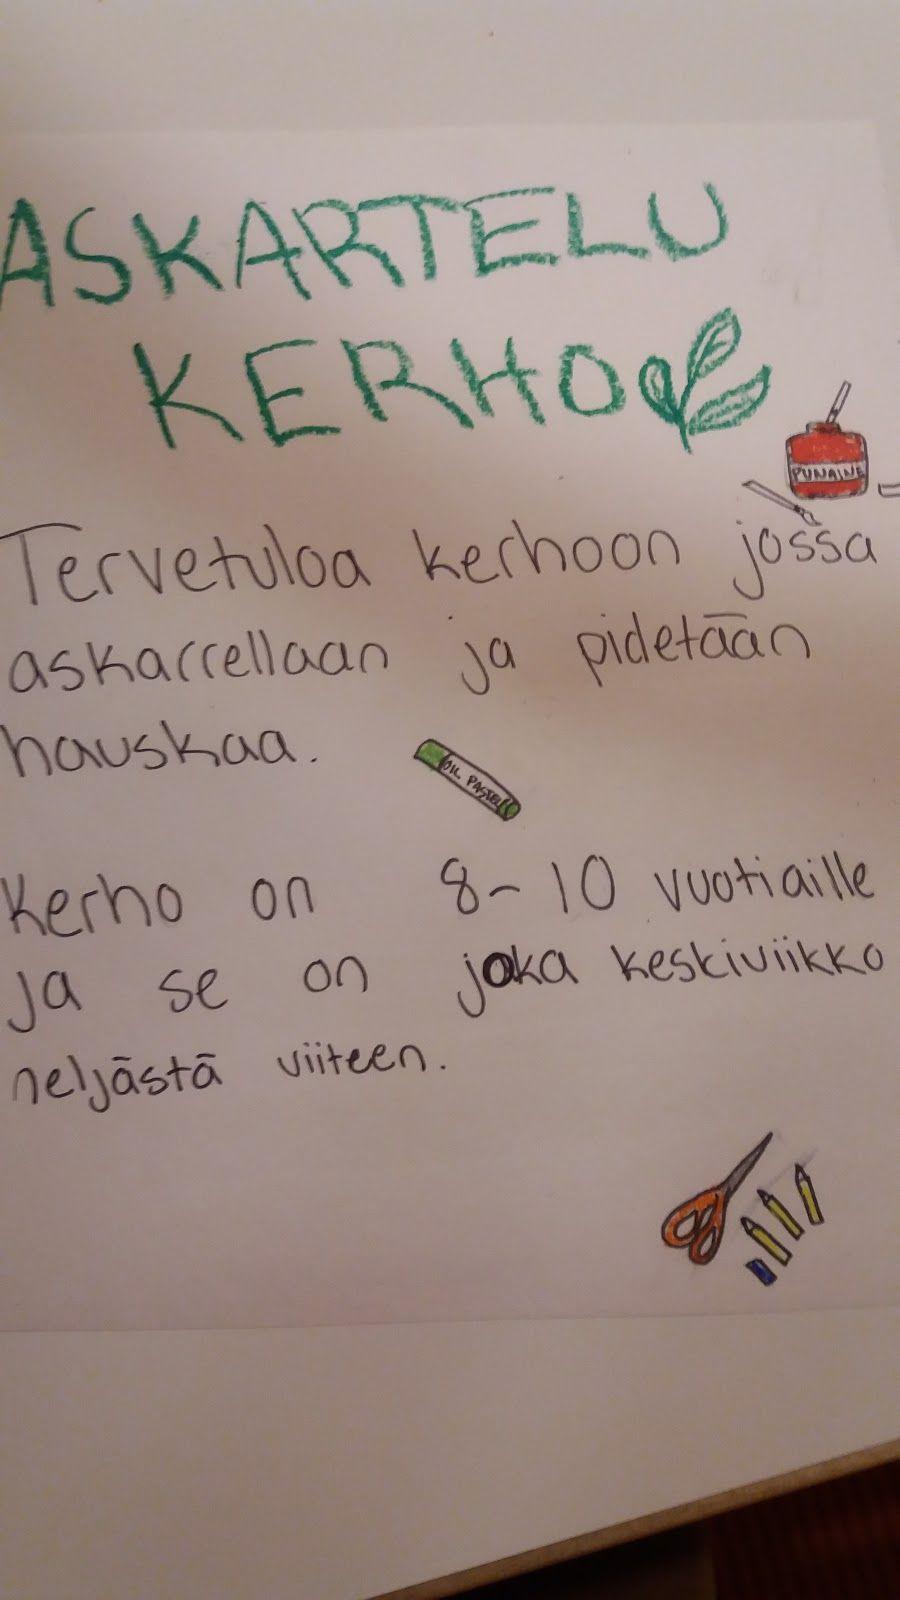 ASKARTELU
KERHO
PUNAINE
Tervetuloa kerhoon jossa
askarrellaan ja pidetään
hauskaa.
OIL PASTEL
Kerho on 8-10 vuotiaille
ja se on joka keskiviikko
neljästä viiteen.